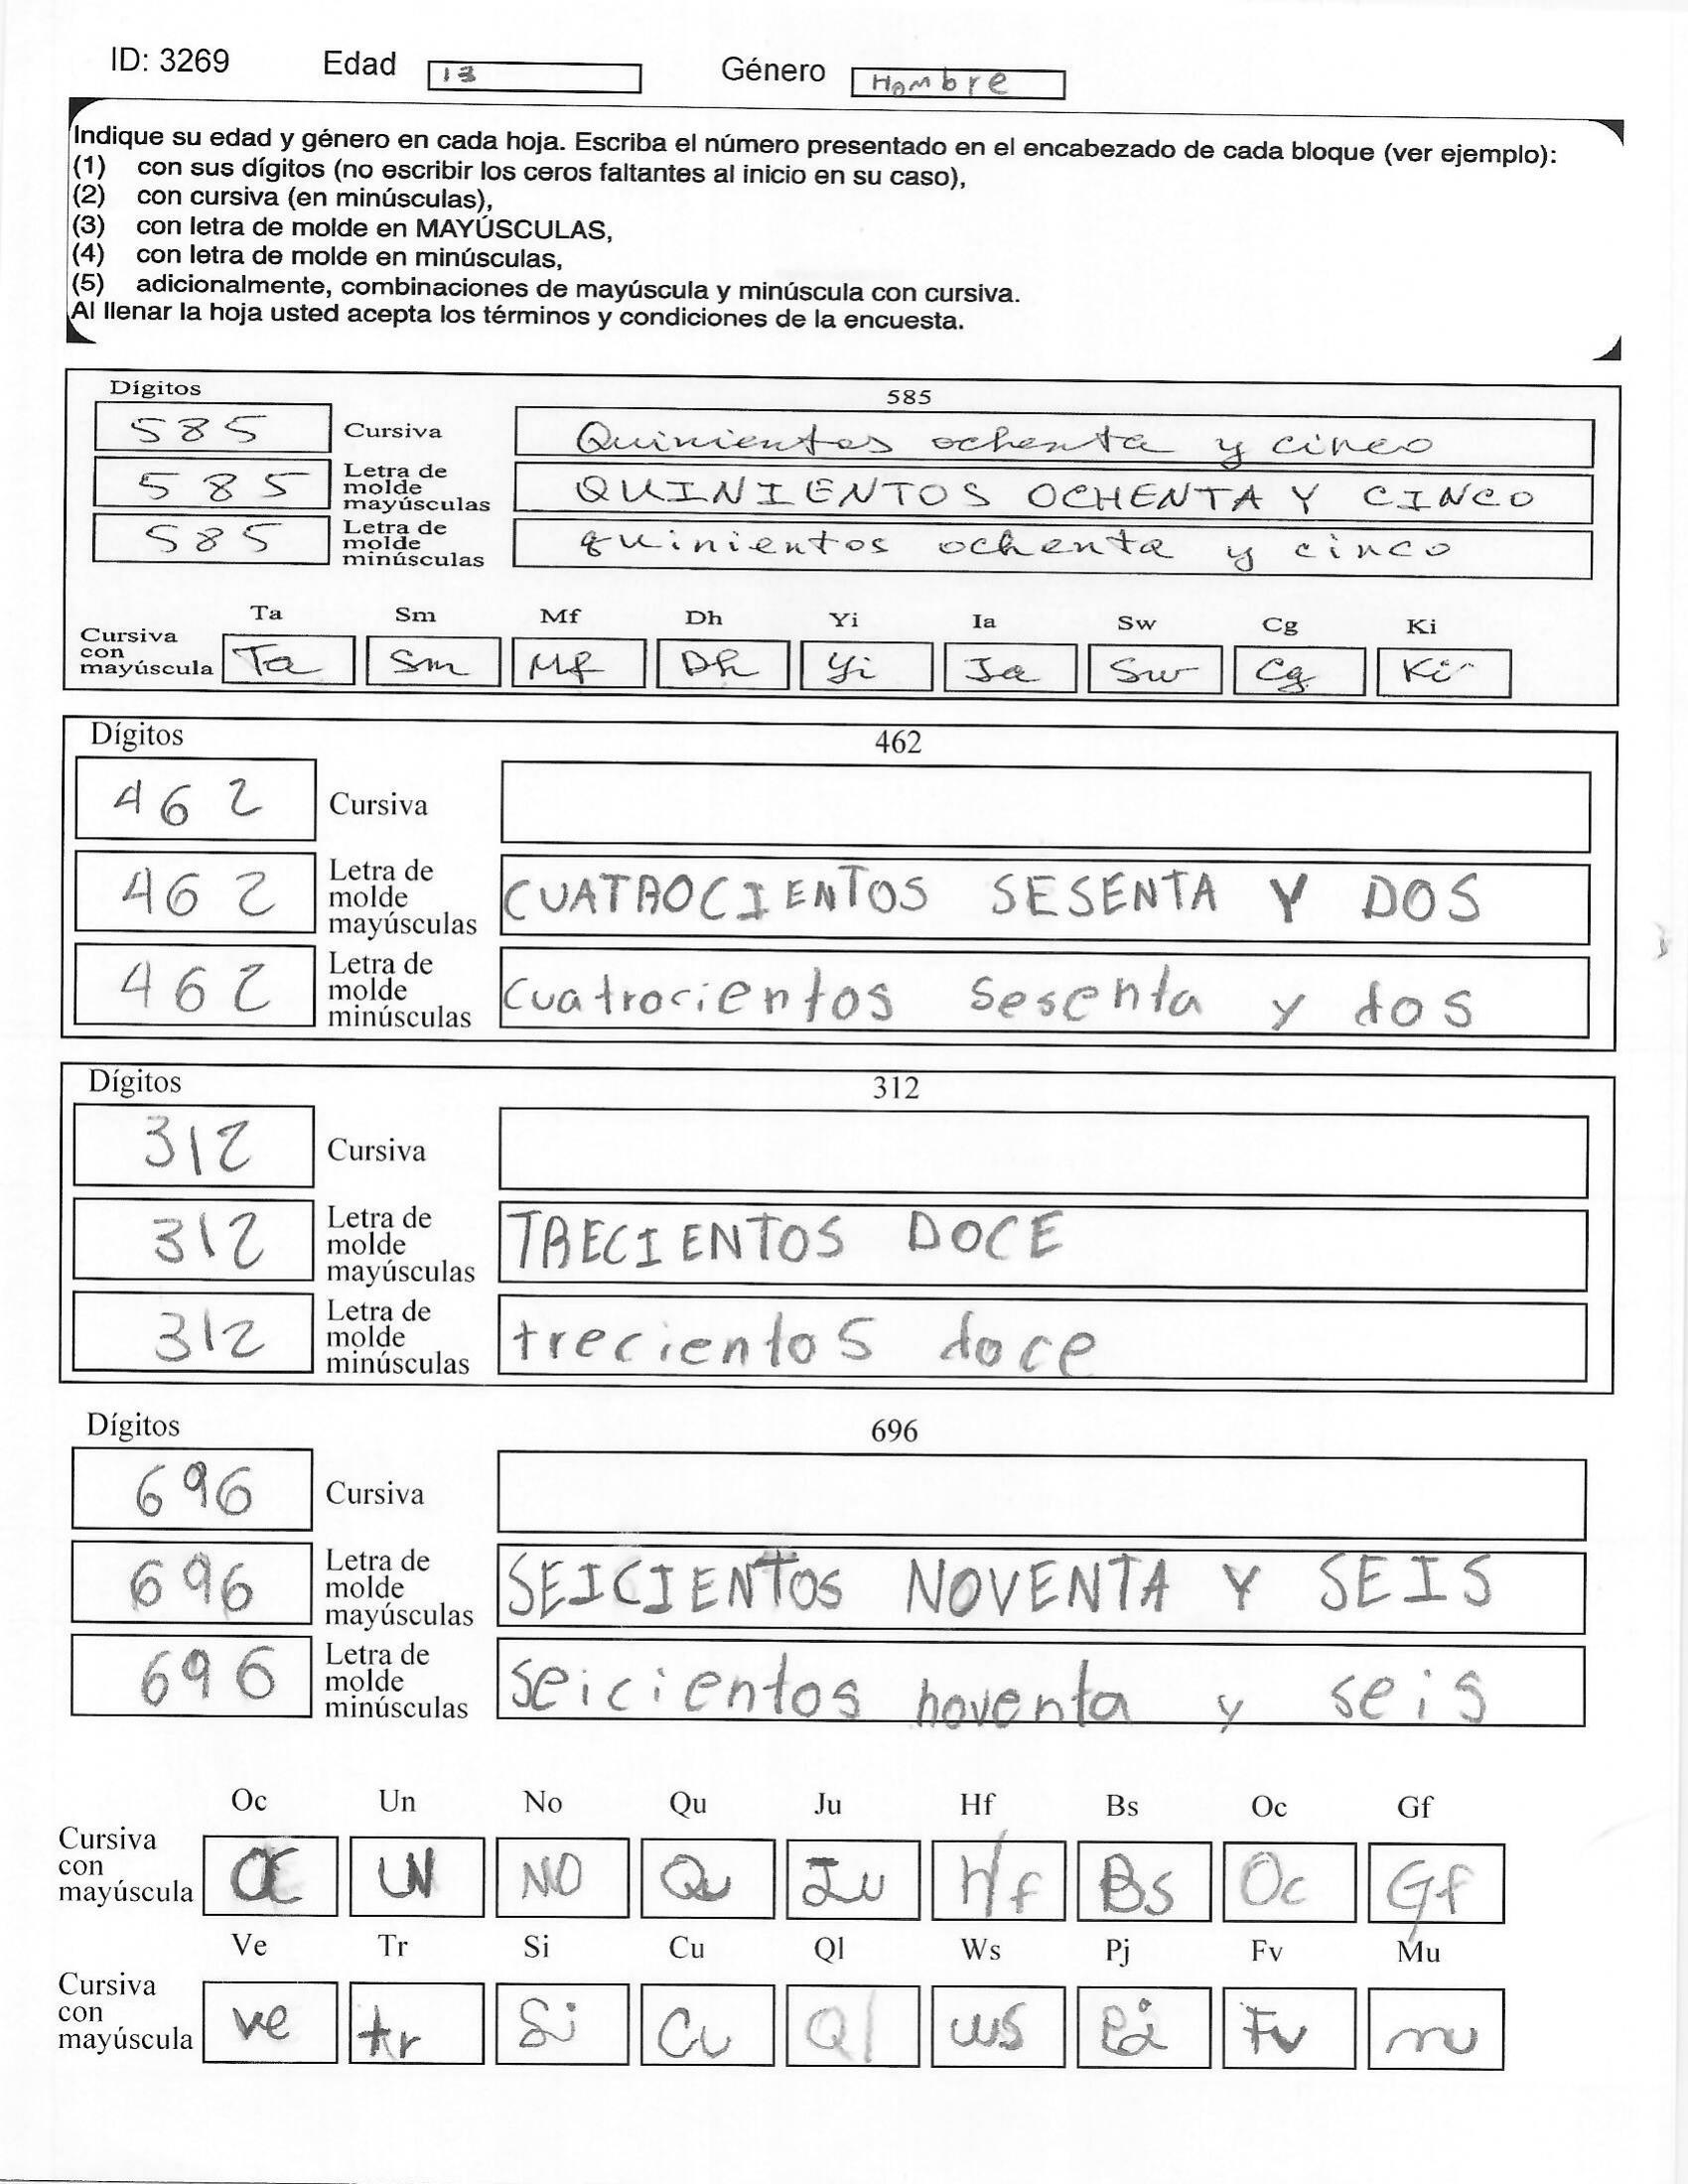 ID: 3269 Edad 13 Género Hombre
Indique su edad y género en cada hoja. Escriba el número presentado en el encabezado de cada bloque (ver ejemplo):
(1) con sus dígitos (no escribir los ceros faltantes al inicio en su caso),
(2) con cursiva (en minúsculas),
(3) con letra de molde en MAYÚSCULAS,
(4) con letra de molde en minúsculas,
(5) adicionalmente, combinaciones de mayúscula y minúscula con cursiva.
Al llenar la hoja usted acepta los términos y condiciones de la encuesta.
Dígitos 585
585 Cursiva Quinientos ochenta y cinco
585 Letra de molde mayúsculas QUINIENTOS OCHENTA Y CINCO
585 Letra de molde minúsculas quinientos ochenta y cinco
Ta Sm Mf Dh Yi Ia Sw Cg Ki
Cursiva con mayúscula Ta Sm Mf Dh Yi Ia Sw Cg Ki
Dígitos 462
462 Cursiva
462 Letra de molde mayúsculas CUATROCIENTOS SESENTA Y DOS
462 Letra de molde minúsculas cuatrocientos sesenta y dos
Dígitos 312
312 Cursiva
312 Letra de molde mayúsculas TRECIENTOS DOCE
312 Letra de molde minúsculas trecientos doce
Dígitos 696
696 Cursiva
696 Letra de molde mayúsculas SEICIENTOS NOVENTA Y SEIS
696 Letra de molde minúsculas seicientos noventa y seis
Oc Un No Qu Ju Hf Bs Oc Gf
Cursiva con mayúscula OC UN NO Qu Ju Hf Bs Oc Gf
Ve Tr Si Cu Ql Ws Pj Fv Mu
Cursiva con mayúscula ve tr Si Cu Ql ws Pj Fv mu